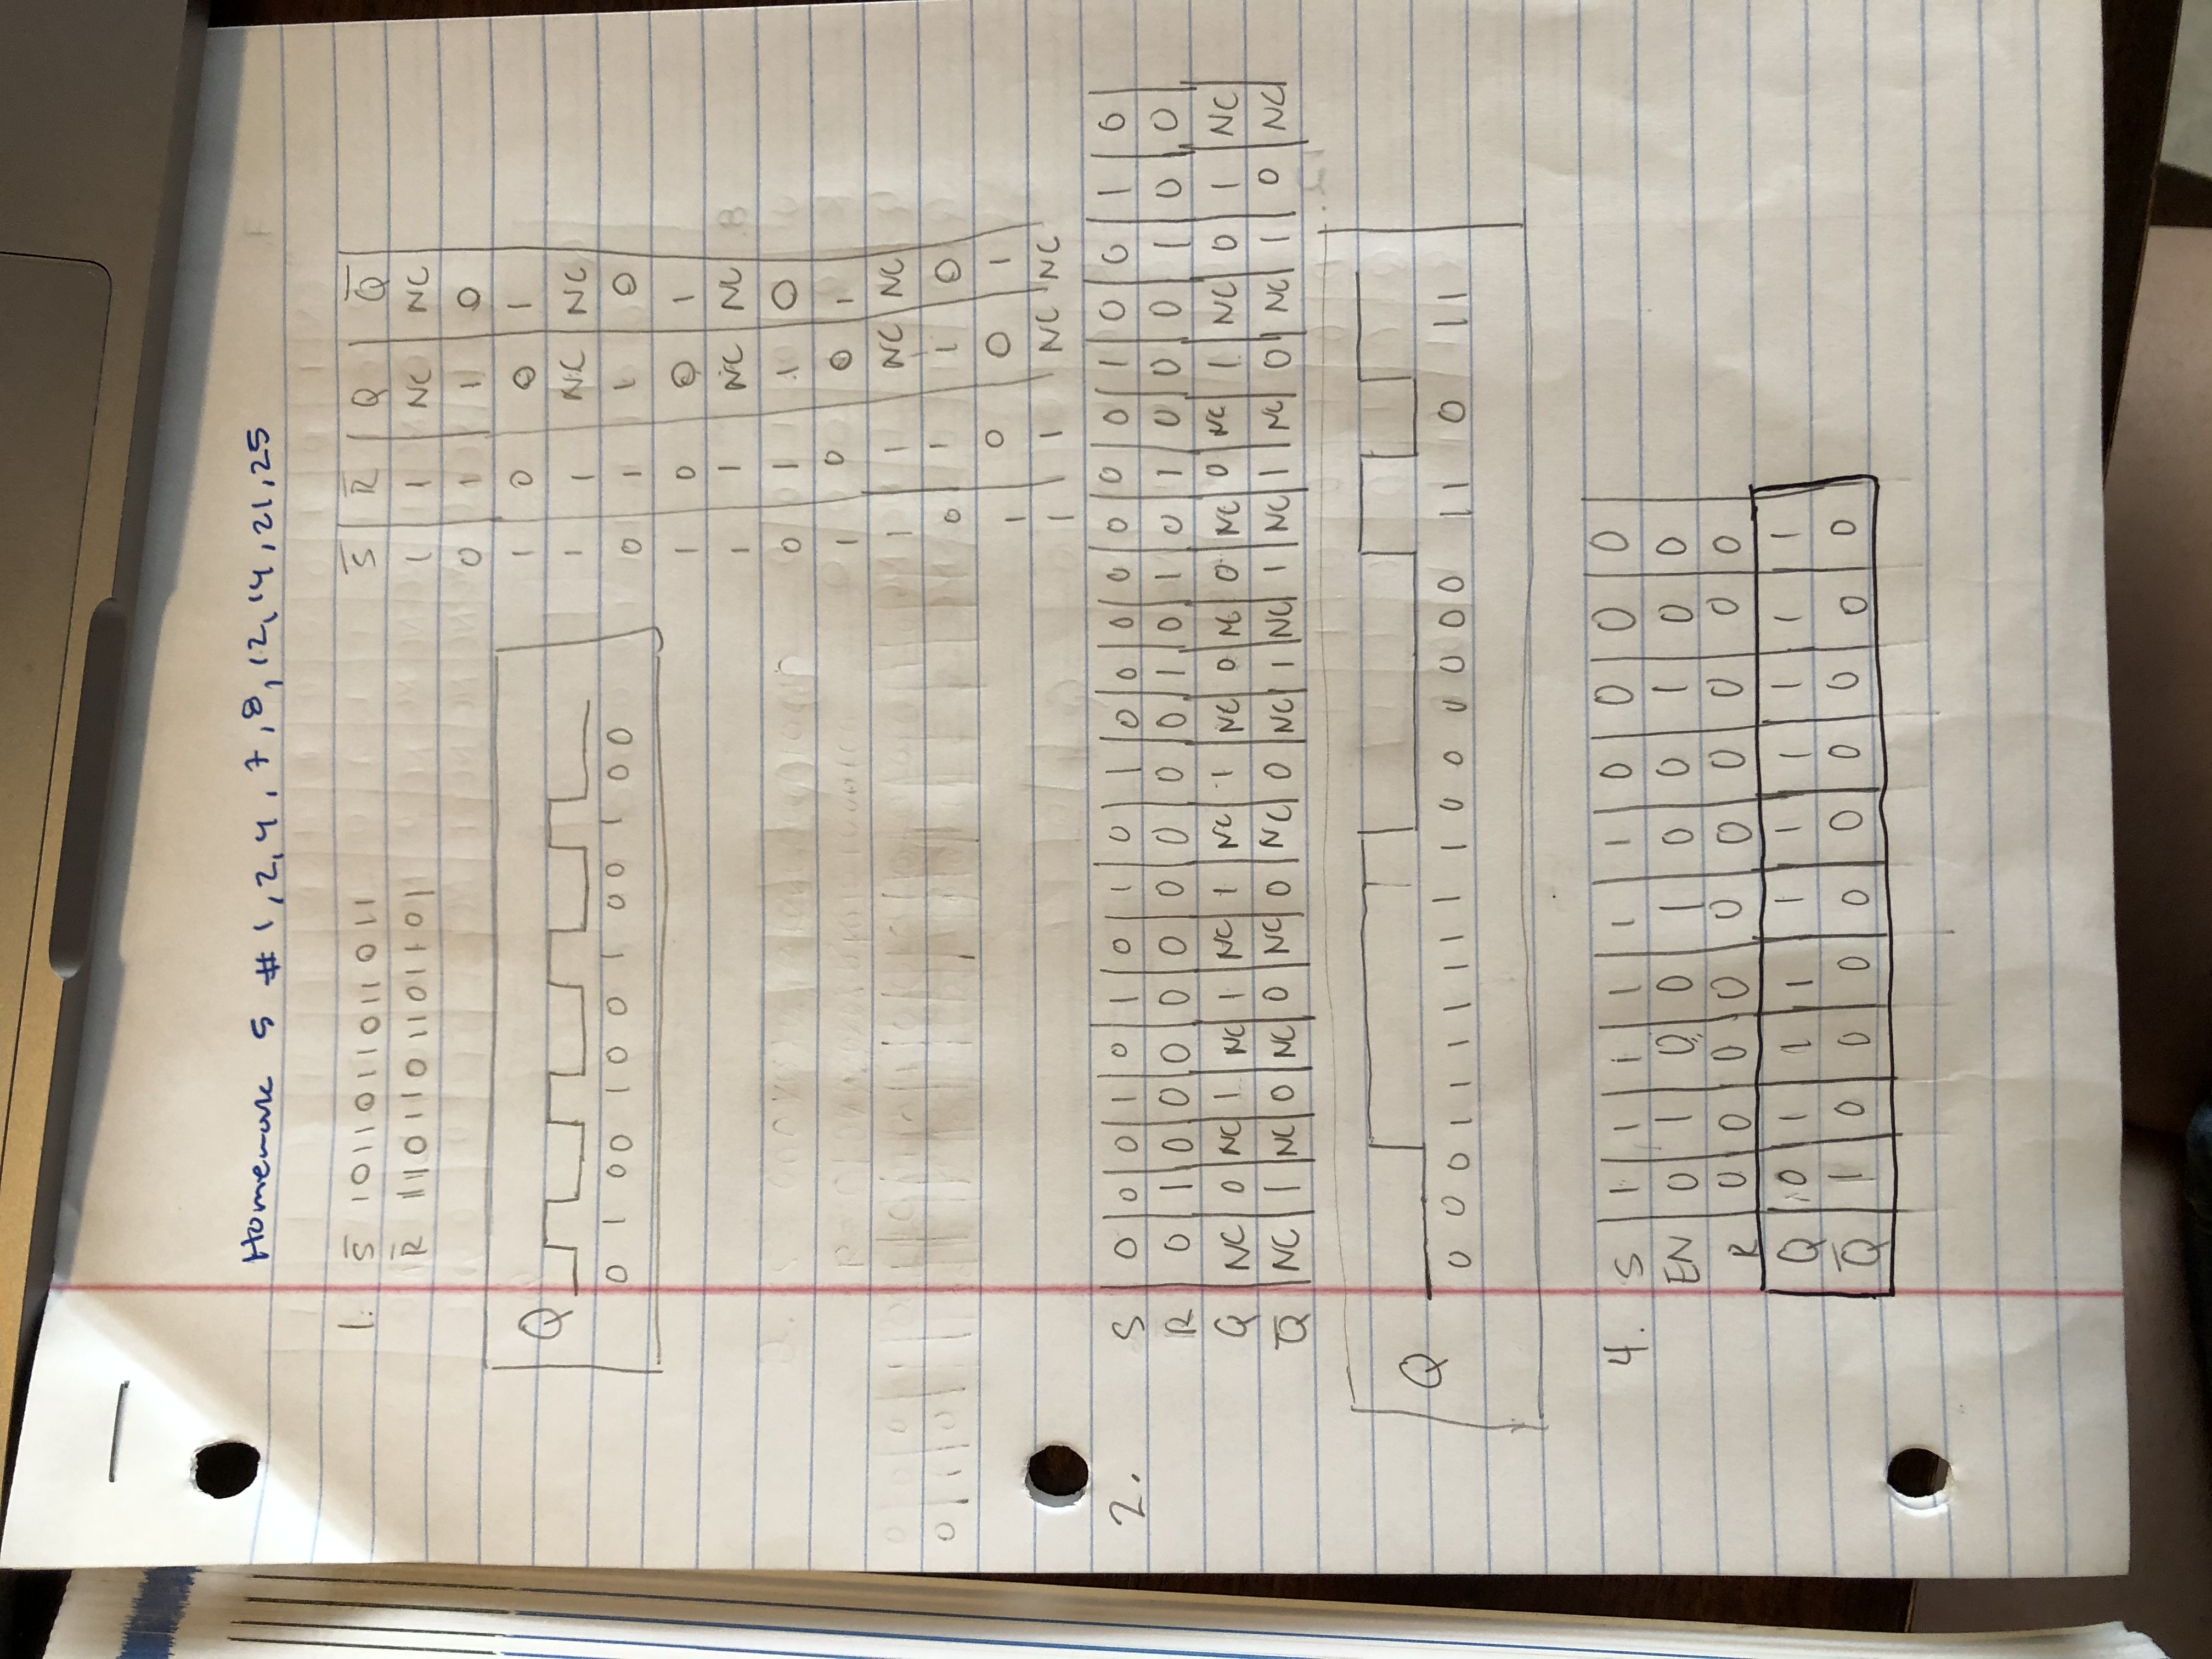 Homework 5 # 1, 2, 4, 7, 8, 12, 14, 21, 25
1. S̅ 1011011011011
R̅ 11101101101101
S̅ R̅ Q Q̅
1 1 NC NC
0 1 1 0
1 0 0 1
1 1 NC NC
0 1 1 0
1 0 0 1
1 1 NC NC
0 1 1 0
1 0 0 1
1 1 NC NC
0 1 1 0
1 0 0 1
1 1 NC NC
Q
0 1 00 1 0 0 1 00 1 0 0
2. S 0 0 0 1 0 1 0 1 0 1 0 0 0 0 0 0 0 1 0 0 1 0
R 0 1 0 0 0 0 0 0 0 0 0 1 0 1 0 1 0 0 0 1 0 0
Q NC 0 NC 1 NC 1 NC 1 NC 1 NC 0 NC 0 NC 0 NC 1 NC 0 1 NC
Q̅ NC 1 NC 0 NC 0 NC 0 NC 0 NC 1 NC 1 NC 1 NC 0 NC 1 0 NC
Q
0 0 0 1 1 1 1 1 1 1 1 0 0 0 0 0 0 1 1 0 1 1
4. S 1 1 1 1 1 1 0 0 0 0
EN 0 1 0 0 1 0 0 1 0 0
R 0 0 0 0 0 0 0 0 0 0
Q 0 1 1 1 1 1 1 1 1 1
Q̅ 1 0 0 0 0 0 0 0 0 0